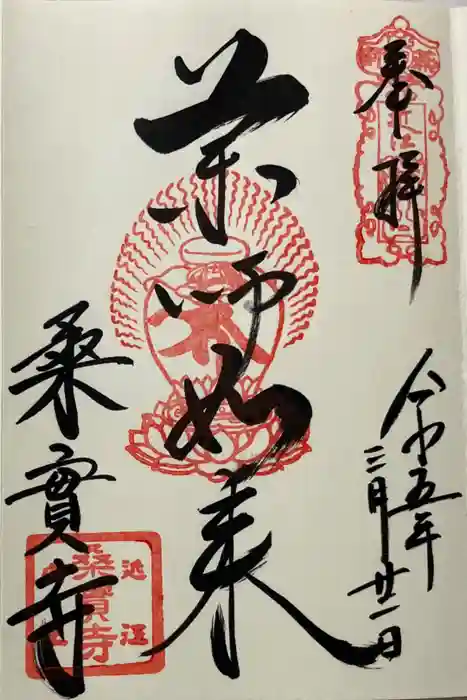 奉拝
令和五年
三月廿一日
薬師如来
桑實寺
近江
桑實寺